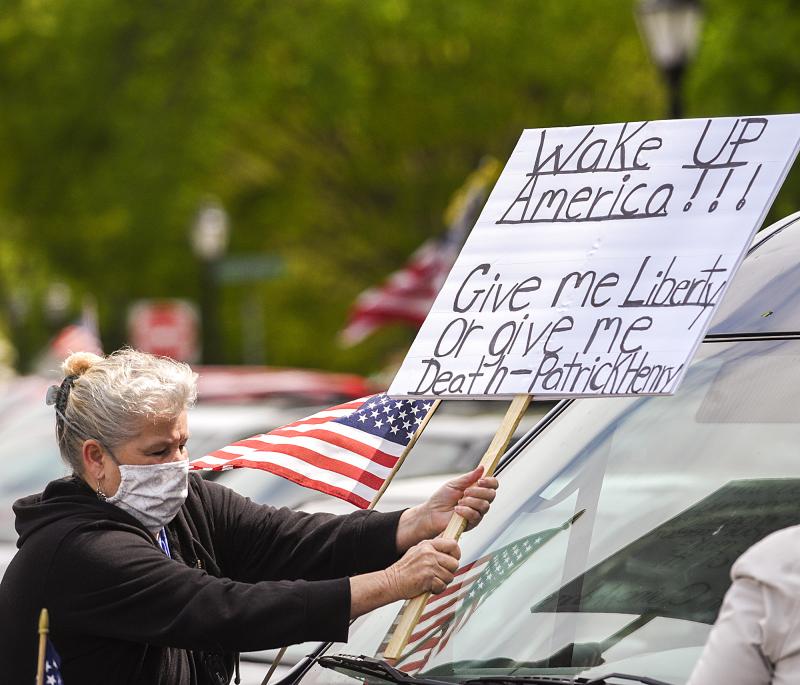 Wake UP
America!!!
Give me Liberty,
Or give me
Death-Patrick Henry